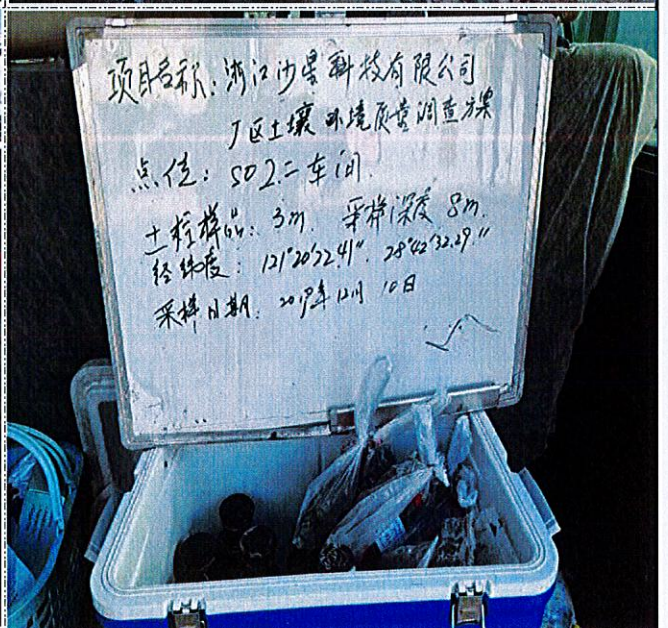 项目名称：浙江沙星科技有限公司
厂区土壤环境质量调查方案
点位：S02二车间.
土柱样品：3m. 采样深度 8m.
经纬度：121°20'22.41" 28°42'32.29"
采样日期：2019年12月10日